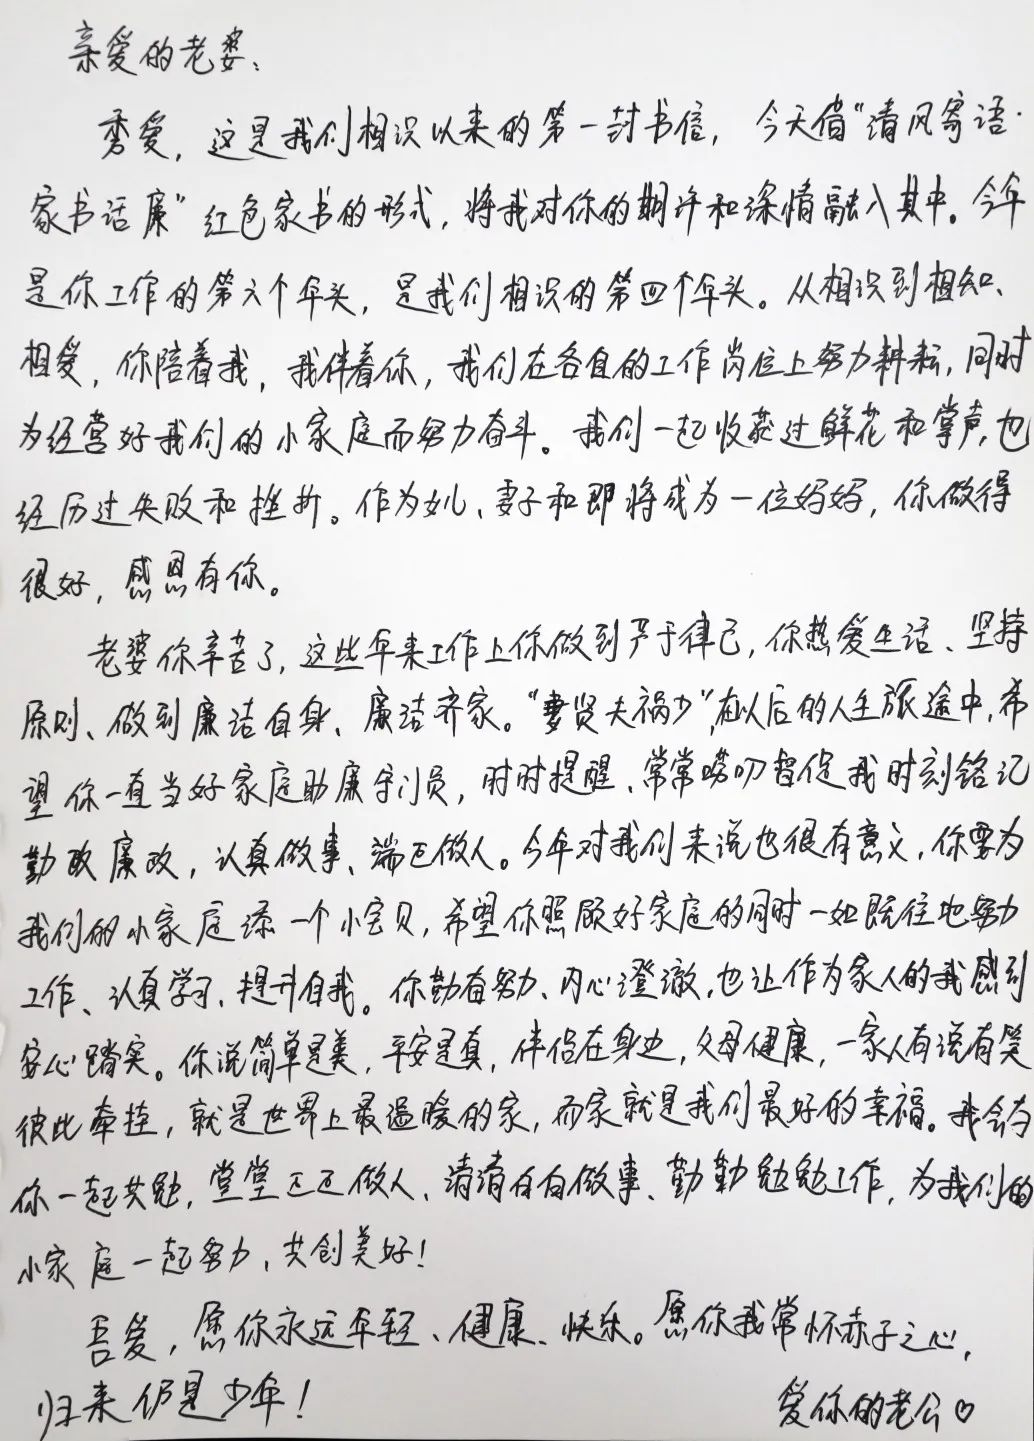 亲爱的老婆：
吾爱，这是我们相识以来的第一封书信，今天借“清风寄语·
家书话廉”红色家书的形式，将我对你的期许和深情融入其中。今年
是你工作的第六个年头，是我们相识的第四个年头。从相识到相知、
相爱，你陪着我，我伴着你，我们在各自的工作岗位上努力耕耘，同时
为经营好我们的小家庭而努力奋斗。我们一起收获过鲜花和掌声，也
经历过失败和挫折。作为女儿、妻子和即将成为一位妈妈，你做得
很好，感恩有你。
老婆你辛苦了，这些年来工作上你做到严于律己，你热爱生活、坚持
原则、做到廉洁自身、廉洁齐家。“妻贤夫祸少”，在以后的人生旅途中，希
望你一直当好家庭助廉守门员，时时提醒、常常唠叨督促我时刻铭记
勤政廉政，认真做事、端正做人。今年对我们来说也很有意义，你要为
我们的小家庭添一个小宝贝，希望你照顾好家庭的同时一如既往地努力
工作、认真学习、提升自我。你勤奋努力、内心澄澈，也让作为家人的我感到
安心踏实。你说简单是美，平安是真，伴侣在身边，父母健康，一家人有说有笑
彼此牵挂，就是世界上最温暖的家，而家就是我们最好的幸福。我会与
你一起共勉，堂堂正正做人、清清白白做事、勤勤勉勉工作，为我们的
小家庭一起努力、共创美好！
吾爱，愿你永远年轻、健康、快乐。愿你我常怀赤子之心，
归来仍是少年！
爱你的老公♡